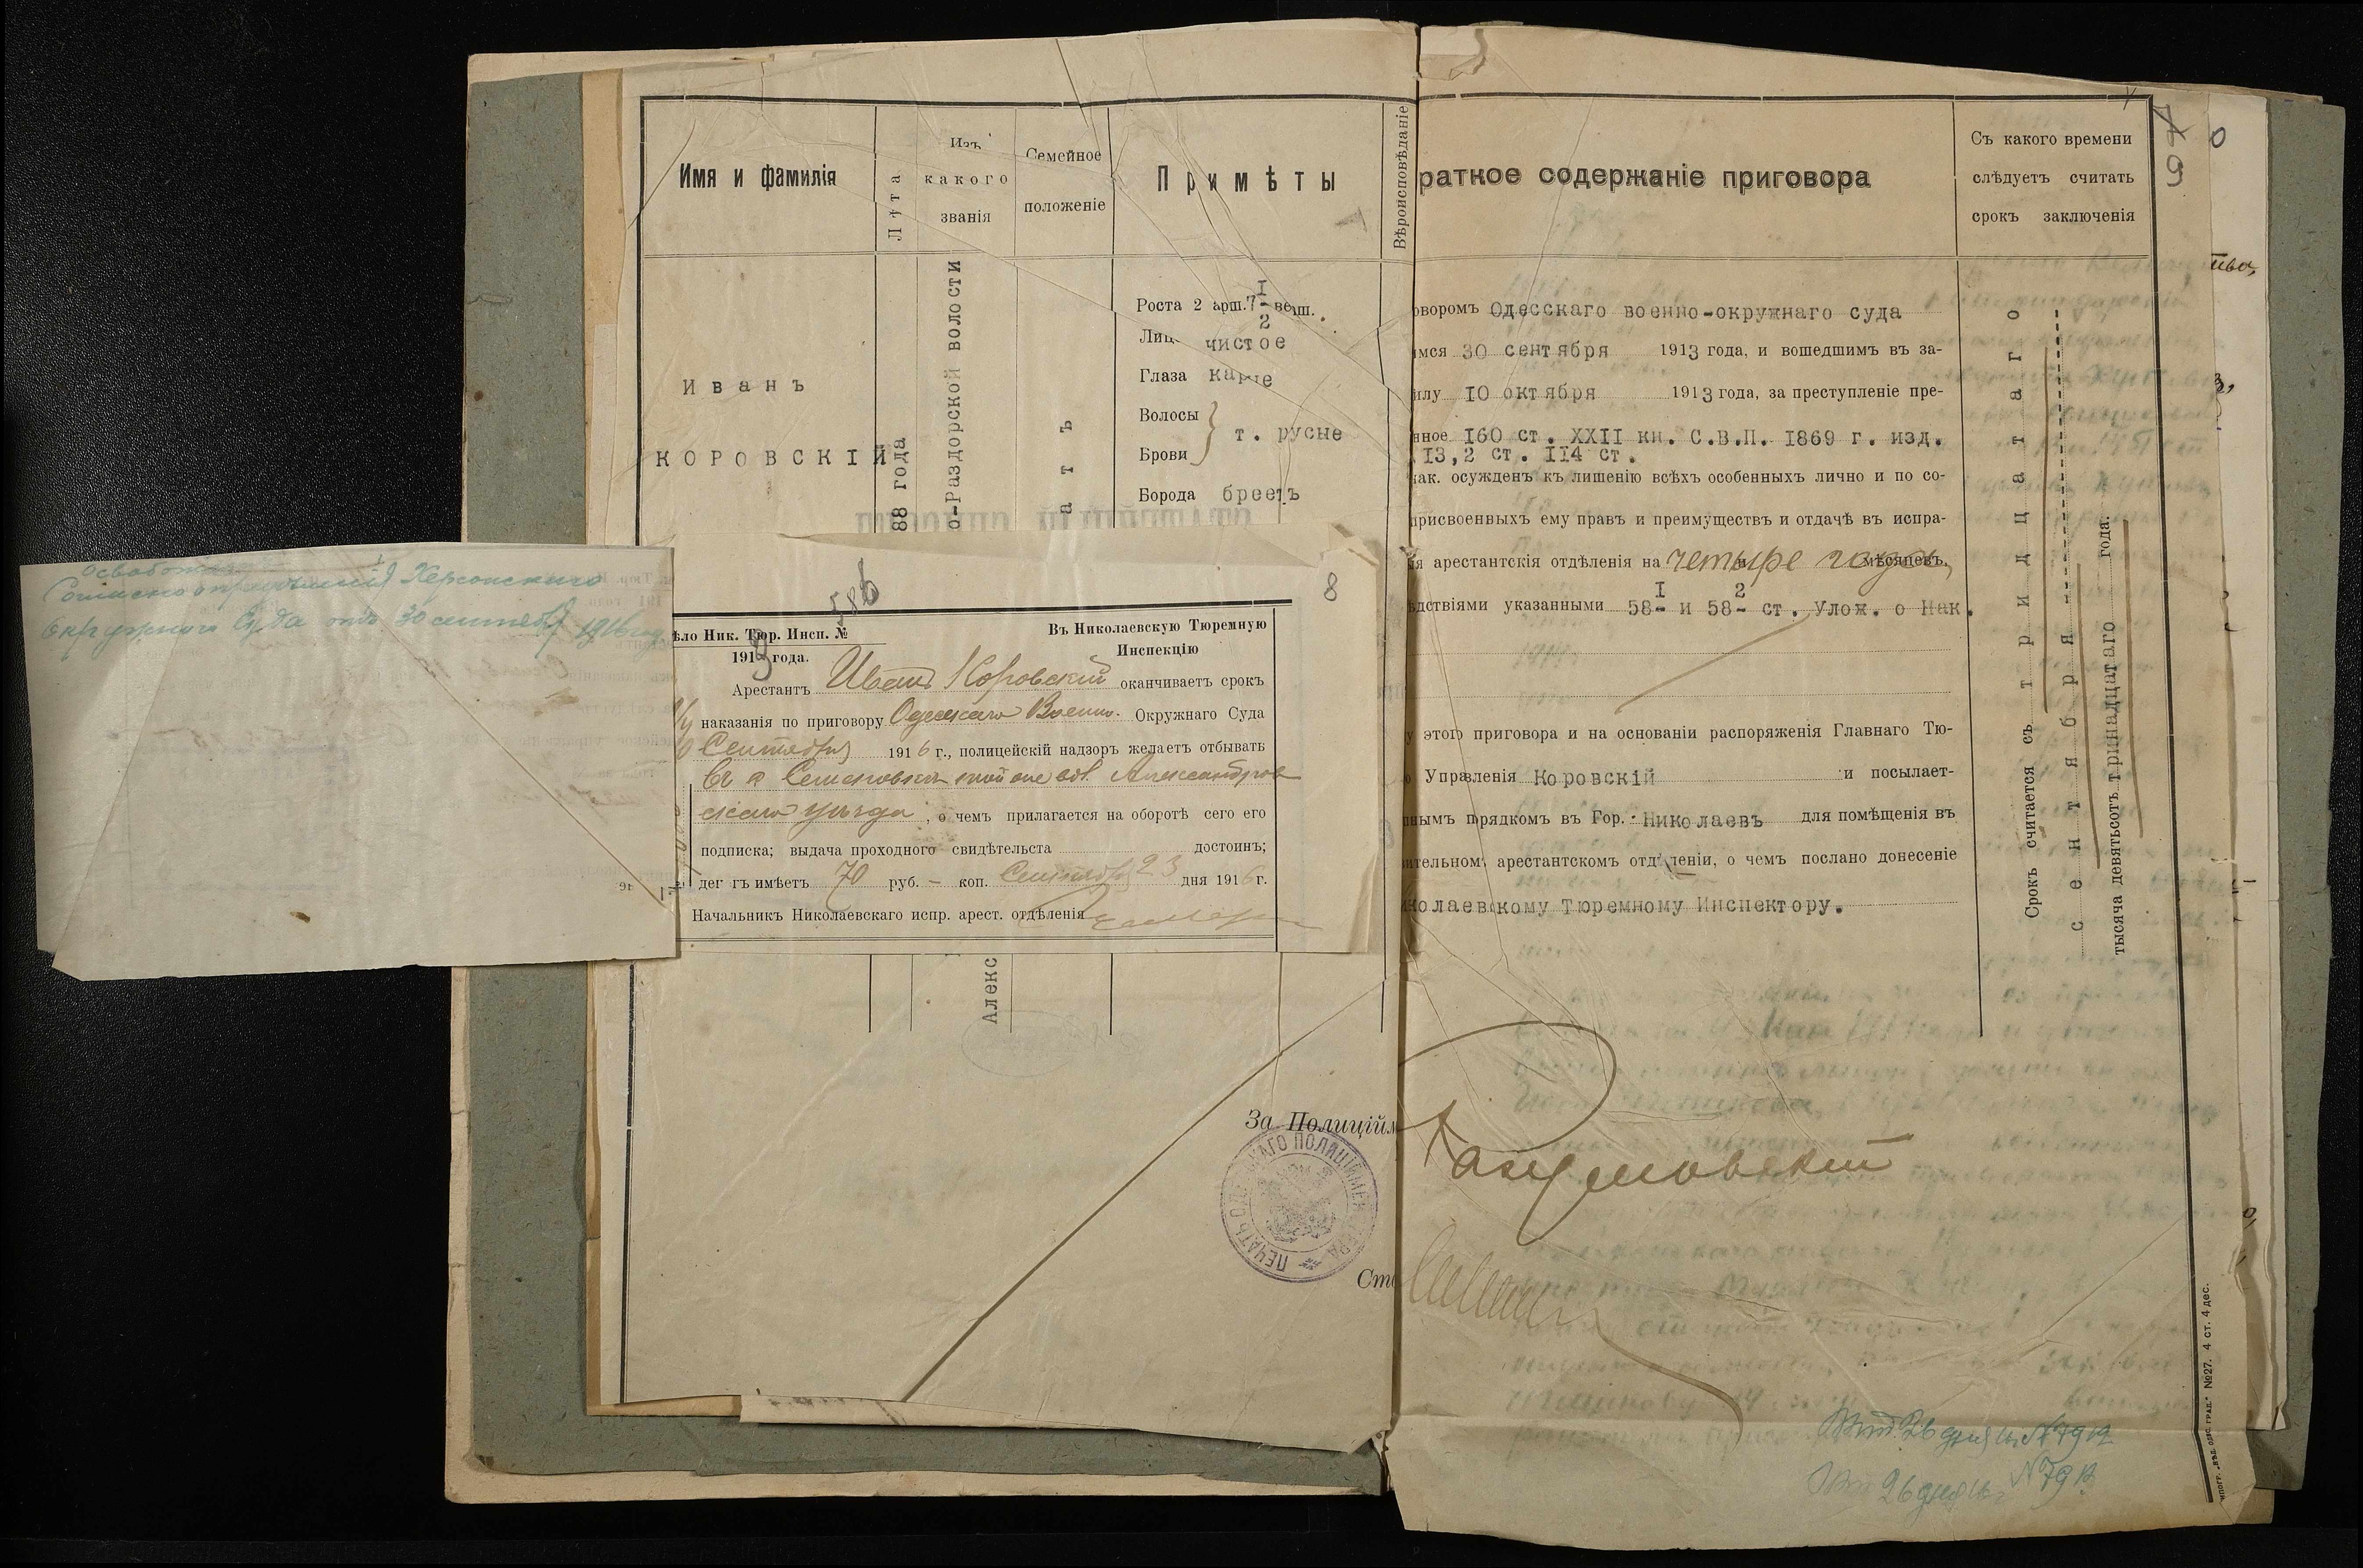 Имя и фамилія
Лѣта
Изъ
какого
званія
Семейное
положеніе
Примѣты
Вѣроисповѣданіе
раткое содержаніе приговора
Съ какого времени
слѣдуетъ считать
срокъ заключенія
9
Иванъ
КОРОВСКІЙ
88 года
о-Раздорской волости
атъ
Алекс
Роста 2 арш. 7 I/2 верш.
Лицо чистое
Глаза каріе
Волосы
Брови
т. русые
Борода брѣетъ
оворомъ Одесскаго военно-окружнаго суда
имся 30 сентября 1913 года, и вошедшимъ въ за-
илу 10 октября 1913 года, за преступленіе пре-
нное 160 ст. XXII кн. С.В.П. 1869 г. изд.
13,2 ст. II4 ст.
нак. осужденъ къ лишенію всѣхъ особенныхъ лично и по со-
присвоенныхъ ему правъ и преимуществъ и отдачѣ въ испра-
ія арестантскія отдѣленія на четыре года мѣсяцевъ,
ѣдствіями указанными 58-I и 58-2 ст. Улож. о Нак.
у этого приговора и на основаніи распоряженія Главнаго Тю-
о Управленія Коровскій и посылает-
нымъ порядкомъ въ Гор. Николаевъ для помѣщенія въ
вительномъ арестантскомъ отдѣленіи, о чемъ послано донесеніе
колаевскому Тюремному Инспектору.
Срокъ считается съ тридцатаго
сентября
тысяча девятьсотъ тринадцатаго года.
Херсонскаго
Окружного Суда отъ 30 сентября 1916 года
586
8
ѣло Ник. Тюр. Инсп. №
1913 года.
Въ Николаевскую Тюремную
Инспекцію
Арестантъ Иванъ Коровскій оканчиваетъ срокъ
наказанія по приговору Одесскаго Военно- Окружнаго Суда
Сентября 1916 г., полицейскій надзоръ желаетъ отбывать
въ с. Семеновск вол. Александров
скаго уѣзда, о чемъ прилагается на оборотѣ сего его
подписка; выдача проходного свидѣтельста достоинъ;
денегъ имѣетъ 70 руб. – коп. Сентября 23 дня 1916 г.
Начальникъ Николаевскаго испр. арест. отдѣленія
За Полиційм
ПЕЧАТЬ ОДЕССКАГО ПОЛИЦІЙМЕЙСТЕРА
Сто
26 дня № 7912
26 дня № 7913
ипогр. „ВѢД. ОДЕС. ГРАД.“ №27. 4 ст. 4 дес.